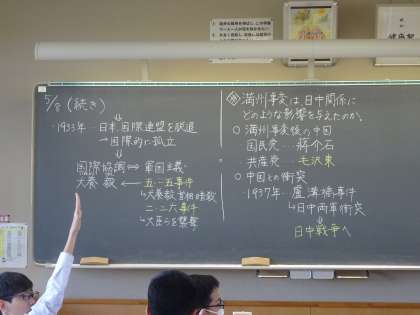 5/8 (続き)
・1933年…日本、国際連盟を脱退
→国際的に孤立
国際協調⇔軍国主義
犬養毅 ← 五・一五事件
↳犬養毅首相暗殺
二・二六事件
↳大臣らを襲撃
満州事変は、日中関係に
どのような影響を与えたのか。
○満州事変後の中国
国民党…蔣介石
共産党…毛沢東
○中国との衝突
・1937年…盧溝橋事件
↳日中両軍衝突
↓
日中戦争へ